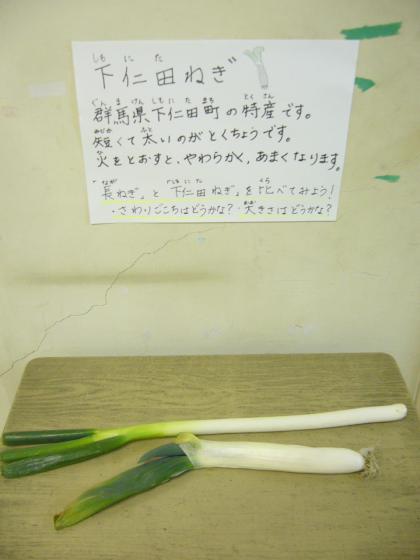 下仁田ねぎ
群馬県下仁田町の特産です。
短くて太いのがとくちょうです。
火をとおすと、やわらかく、あまくなります。
「長ねぎ」と「下仁田ねぎ」を比べてみよう!
・さわりごこちはどうかな?・大きさはどうかな?